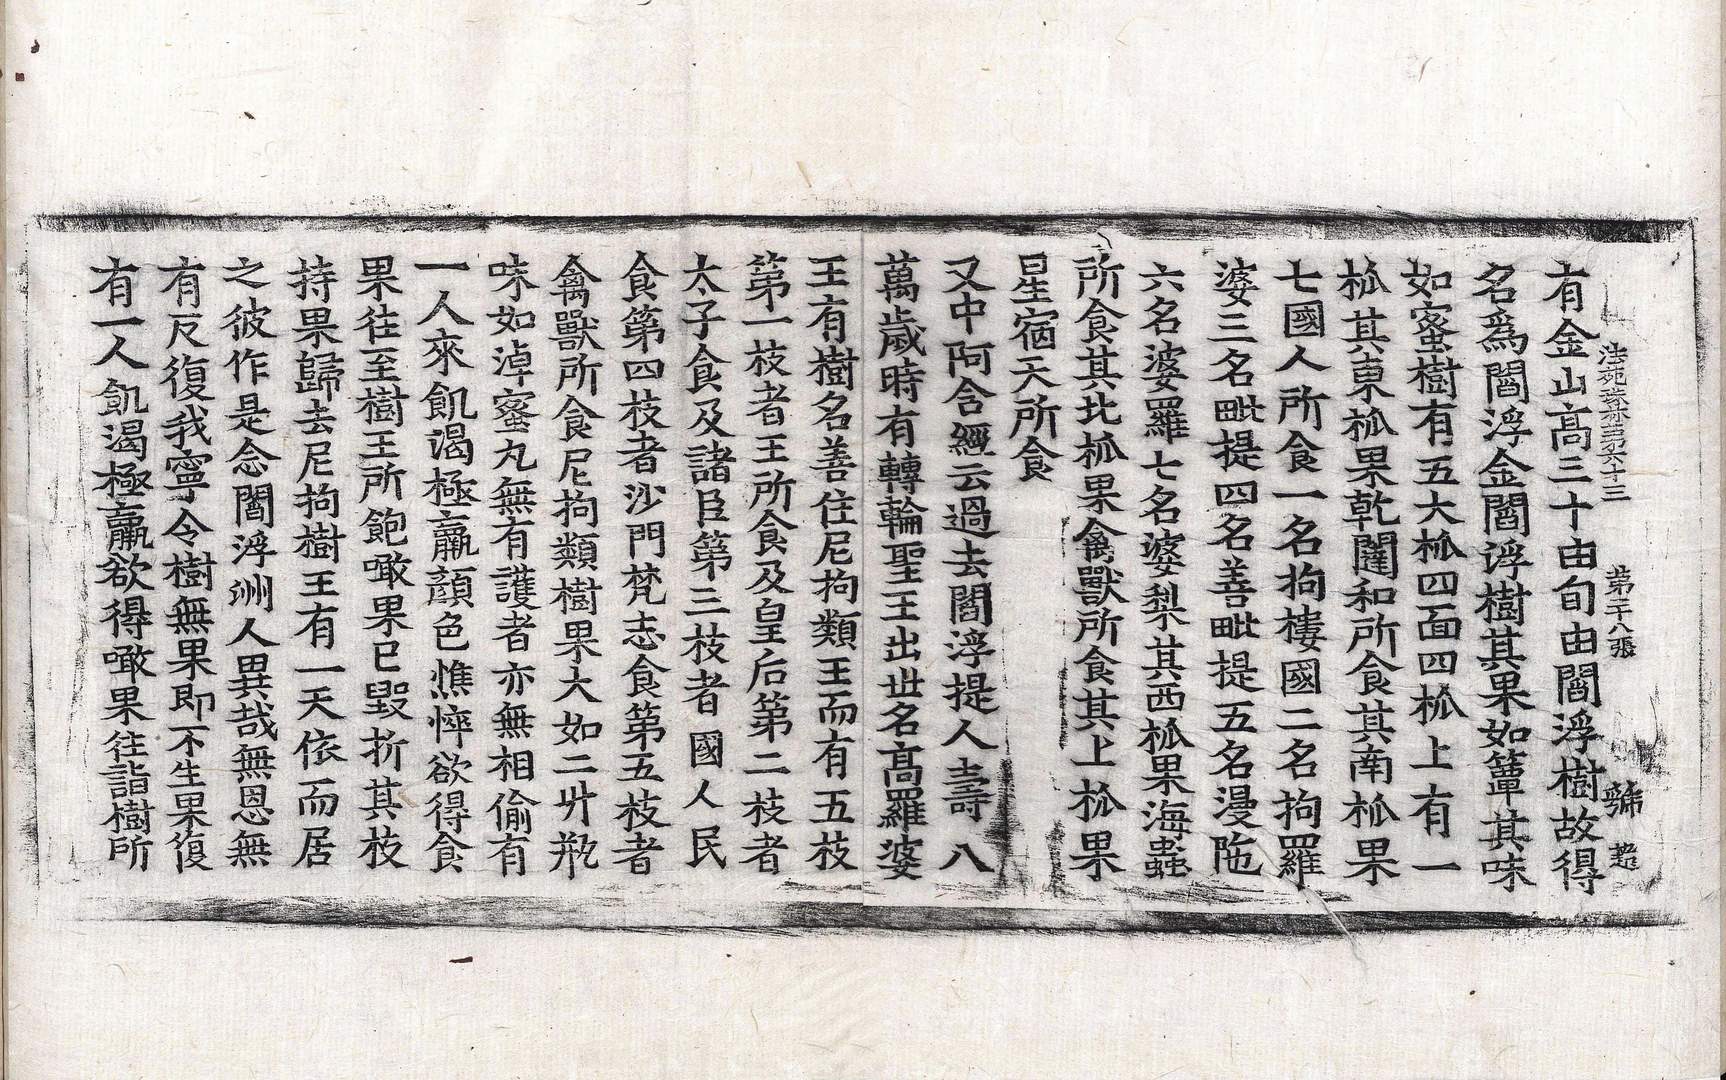 法苑珠林第六十三 第二十八張 號
有金山高三十由旬由閻浮樹故得
名爲閻浮金閻浮樹其果如簞其味
如蜜樹有五大枛四面四枛上有一
枛其東枛果乾闥和所食其南枛果
七國人所食一名拘樓國二名拘羅
婆三名毗提四名善毗提五名漫陁
六名婆羅七名婆梨其西枛果海蟲
所食其北枛果禽獸所食其上枛果
星宿天所食
又中阿含經云過去閻浮提人壽八
萬歲時有轉輪聖王出世名高羅婆
王有樹名善住尼拘類王而有五枝
第一枝者王所食及皇后第二枝者
太子食及諸臣第三枝者國人民
食第四枝者沙門梵志食第五枝者
禽獸所食尼拘類樹果大如二升瓶
味如淖蜜丸無有護者亦無相偷有
一人來飢渴極羸顔色憔悴欲得食
果往至樹王所飽噉果已毀折其枝
持果歸去尼拘樹王有一天依而居
之彼作是念閻浮洲人異哉無恩無
有反復我寧令樹無果即不生果復
有一人飢渴極羸欲得噉果往詣樹所